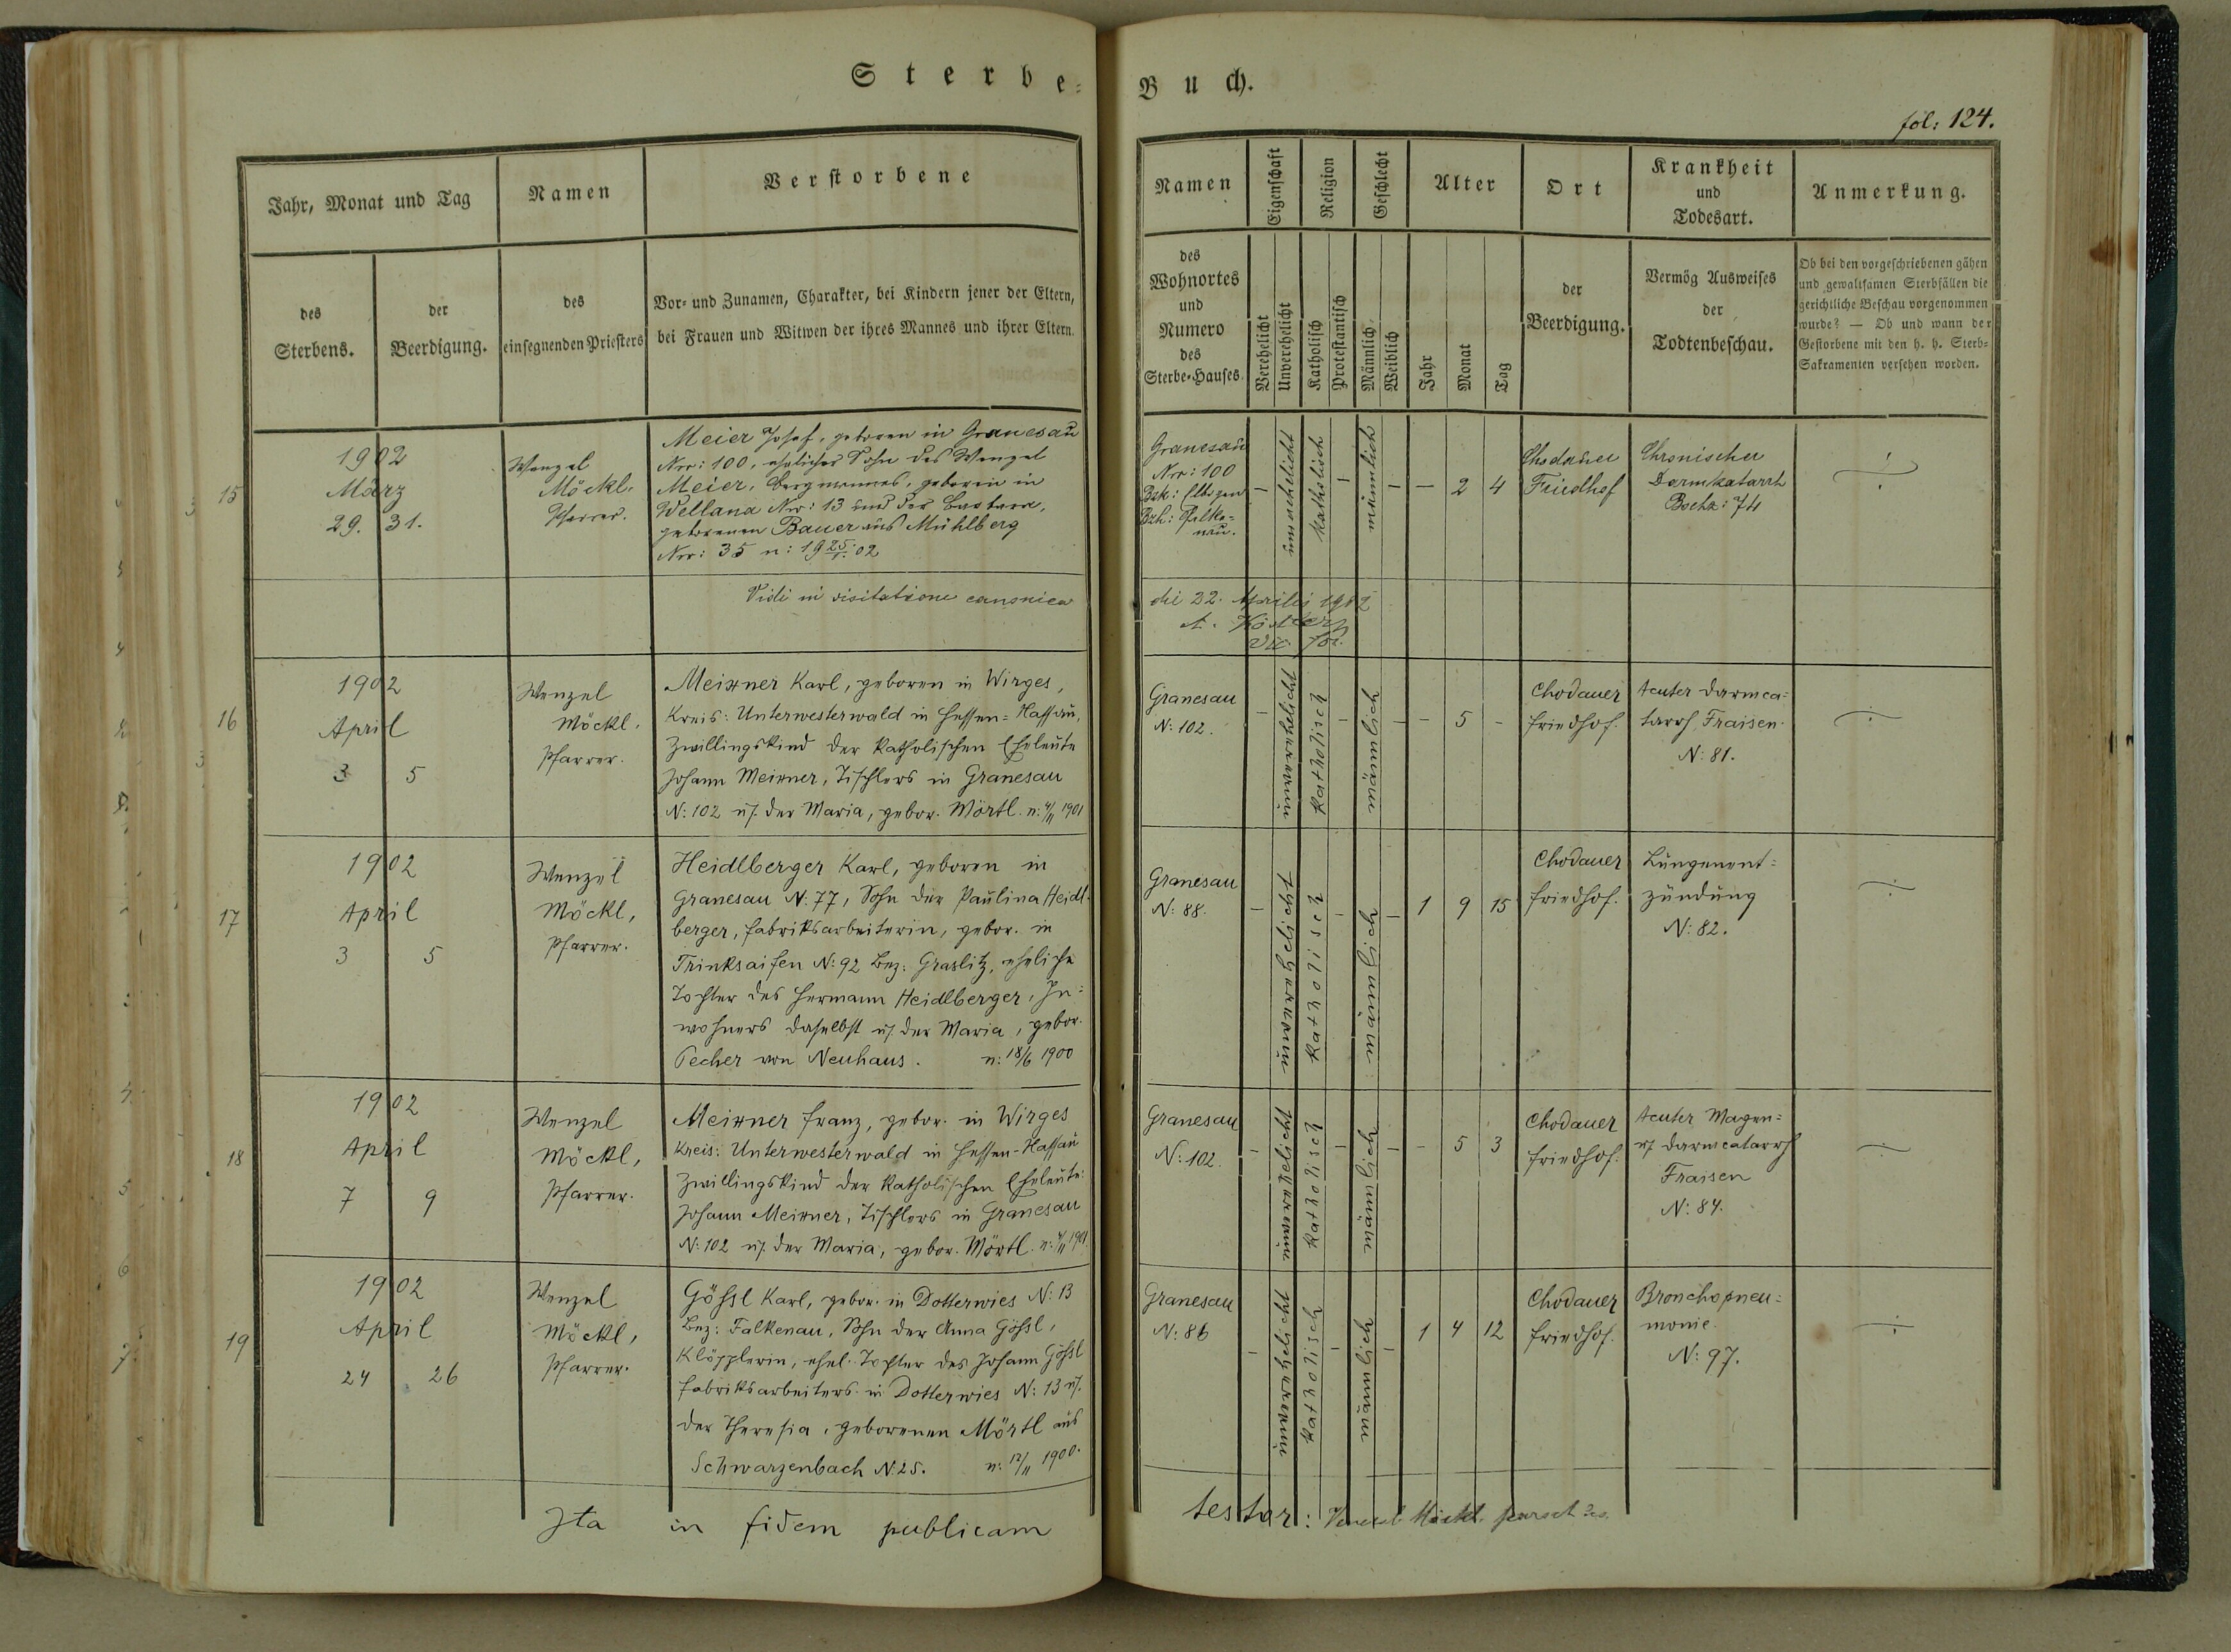 Sterbe-
Buch.
fol: 124.
Jahr, Monat und Tag
Namen
Verstorbene
des
Sterbens.
der
Beerdigung.
des
einsegnenden Priesters
Vor- und Zunamen, Charakter, bei Kindern jener der Eltern,
bei Frauen und Witwen der ihres Mannes und ihrer Eltern.
Namen
Eigenschaft
Religion
Geschlecht
Alter
Ort
Krankheit
und
Todesart.
Anmerkung.
des
Wohnortes
und
Numero
des
Sterbe-Hauses.
Verehelicht
Unverehelicht
Katholisch
Protestantisch
Männlich
Weiblich
Jahr
Monat
Tag
der
Beerdigung.
Vermög Ausweises
der
Todtenbeschau.
Ob bei den vorgeschriebenen gähen
und gewaltsamen Sterbfällen die
gerichtliche Beschau vorgenommen
wurde? — Ob und wann der
Gestorbene mit den h. h. Sterb-
Sakramenten versehen worden.
15
1902
März
29. 31.
Wenzel
Möckl.
Pfarrer.
Meier Josef, geboren in Granesau
Nro: 100, ehelicher Sohn des Wenzel
Meier, Bergmannes, geboren in
Wellana Nro: 13 und der Barbara,
geborenen Bauer aus Mühlberg
Nro: 35 n: 19 25/1. 02
Granesau
Nro: 100
Bzk: Elbogen
Bzh: Falke-
nau.
–
unverehelicht
katholisch
–
männlich
–
– 2 4
Chodauer
Friedhof
Chronischer
Darmkatarrh
Bschz: 74
Vidi in visitatione canonica
die 22. Aprilis 1902
16
1902
April
3 5
Wenzel
Möckl.
Pfarrer.
Meixner Karl, geboren in Wirges,
Kreis: Unterwesterwald in Hessen-Nassau,
Zwillingskind der katholischen Eheleute
Johann Meixner, Tischlers in Granesau
N: 102 u. der Maria, gebor. Mörtl. n: 4/11 1901
Granesau
N: 102.
–
unverehelicht
katholisch
–
männlich
–
– 5 –
Chodauer
Friedhof.
Acuter Darmca-
tarrh Fraisen.
N: 81.
17
1902
April
3 5
Wenzel
Möckl,
Pfarrer.
Heidlberger Karl, geboren in
Granesau N: 77, Sohn der Paulina Heidl-
berger, Fabriksarbeiterin, gebor. in
Trinksaifen N: 92 Bez: Graslitz, eheliche
Tochter des Hermann Heidlberger, In-
wohners daselbst u. der Maria, gebor.
Pecher von Neuhaus. n: 18/6 1900
Granesau
N: 88.
–
unverehelicht
katholisch
–
männlich
–
1 9 15
Chodauer
Friedhof.
Lungenent-
zündung
N: 82.
18
1902
April
7 9
Wenzel
Möckl,
Pfarrer.
Meixner Franz, gebor. in Wirges
Kreis: Unterwesterwald in Hessen-Nassau
Zwillingskind der katholischen Eheleute:
Johann Meixner, Tischlers in Granesau
N: 102 u. der Maria, gebor. Mörtl. n: 4/11 1901.
Granesau
N: 102.
–
unverehelicht
katholisch
–
männlich
–
– 5 3
Chodauer
Friedhof.
Acuter Magen-
u. Darmcatarrh
Fraisen
N: 84.
19
1902
April
24 26
Wenzel
Möckl,
Pfarrer.
Gößl Karl, gebor. in Dotterwies N: 13
Bez: Falkenau, Sohn der Anna Gößl,
Klöpplerin, ehel. Tochter des Johann Gößl
Fabriksarbeiters in Dotterwies N: 13 u.
der Theresia, geborenen Mörtl aus
Schwarzenbach N 25. n: 12/11 1900.
Granesau
N: 86
–
unverehelicht
katholisch
–
männlich
–
1 4 12
Chodauer
Friedhof.
Bronchopneu-
monie.
N: 97.
Ita in fidem publicam
testor: Wenzel Möckl